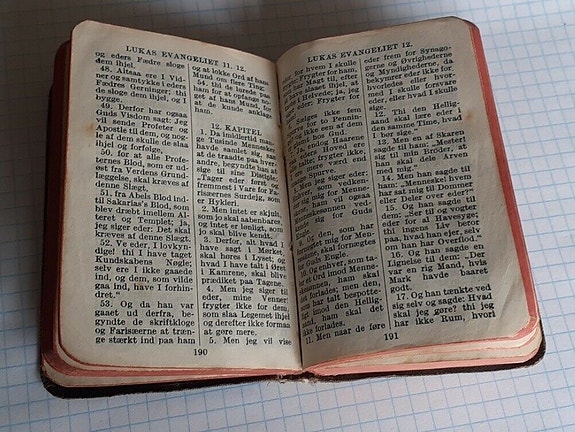 LUKAS EVANGELIET 11. 12.
og eders Fædre sloge
dem ihjel.
48. Altsaa ere I Vid-
ner og samtykke i eders
Fædres Gerninger; thi
de sloge dem ihjel, og I
bygge.
49. Derfor har ogsaa
Guds Visdom sagt: Jeg
vil sende Profeter og
Apostle til dem, og nog-
le af dem skulle de slaa
ihjel og forfølge,
50. for at alle Profe-
ternes Blod, som er ud-
øst fra Verdens Grund-
læggelse, skal kræves af
denne Slægt,
51. fra Abels Blod ind-
til Sakarias's Blod, som
blev dræbt imellem Al-
teret og Templet; ja,
jeg siger eder: Det skal
kræves af denne Slægt.
52. Ve eder, I lovkyn-
dige! thi I have taget
Kundskabens Nøgle;
selv ere I ikke gaaede
ind, og dem, som vilde
gaa ind, have I forhin-
dret."
53. Og da han var
gaaet ud derfra, be-
gyndte de skriftkloge
og Farisæerne at træn-
ge stærkt ind paa ham
og at lokke Ord af hans
Mund om flere Ting;
54. thi de lurede paa
ham for at opfange no-
get af hans Mund, for at
de kunde anklage
ham.
12. KAPITEL
1. Da imidlertid man-
ge Tusinde Mennesker
havde samlet sig, saa
at de traadte paa hver-
andre, begyndte han at
sige til sine Disciple:
„Tager eder først og
fremmest i Vare for Fa-
risæernes Surdejg, som
er Hykleri.
2. Men intet er skjult,
som jo skal aabenbares,
og intet er lønligt, som
jo skal blive kendt.
3. Derfor, alt hvad I
have sagt i Mørket,
skal høres i Lyset; og
hvad I have talt i Øret
i Kamrene, skal blive
prædiket paa Tagene.
4. Men jeg siger til
eder, mine Venner!
frygter ikke for dem,
som slaa Legemet ihjel
og derefter ikke formaa
at gøre mere.
5. Men jeg vil vise
190
LUKAS EVANGELIET 12.
for hvem I skulle
Frygter for ham,
Magt til, efter
slaaet ihjel, at
i Helvede; ja, jeg
Frygter for
Sælges ikke fem
to Pennin-
ikke een af dem
hos Gud.
endog Haarene
Hoved ere
Frygter ikke,
mere værd end
Spurve.
Men jeg siger eder:
som vedken-
sig mig for Menne-
ham vil ogsaa
Menneskesønnen ved-
sig for Guds
den, som har
mig for Men-
neskene, skal fornægtes
Guds Engle.
10. Og enhver, som ta-
Ord imod Menne-
skesønnen, ham skal
det forlades; men den,
har talt bespotte-
ligt imod den Hellig-
ham skal det
ikke forlades.
11. Men naar de føre
eder frem for Synago-
gerne og Øvrighederne
og Myndighederne, da
bekymrer eder ikke for,
hvorledes eller hvor-
med I skulle forsvare
eder, eller hvad I skulle
sige.
12. Thi den Hellig-
aand skal lære eder i
den samme Time, hvad
I bør sige."
13. Men en af Skaren
sagde til ham: „Mester!
sig til min Broder, at
han skal dele Arven
med mig."
14. Men han sagde til
ham: „Menneske! hvem
har sat mig til Dommer
eller Deler over eder?"
15. Og han sagde til
dem: „Ser til og vogter
eder for al Havesyge;
thi ingens Liv beror
paa, hvad han ejer, selv
om han har Overflod."
16. Og han sagde en
Lignelse til dem: „Der
var en rig Mand, hvis
Mark havde baaret
godt.
17. Og han tænkte ved
sig selv og sagde: Hvad
skal jeg gøre? thi jeg
har ikke Rum, hvori
191